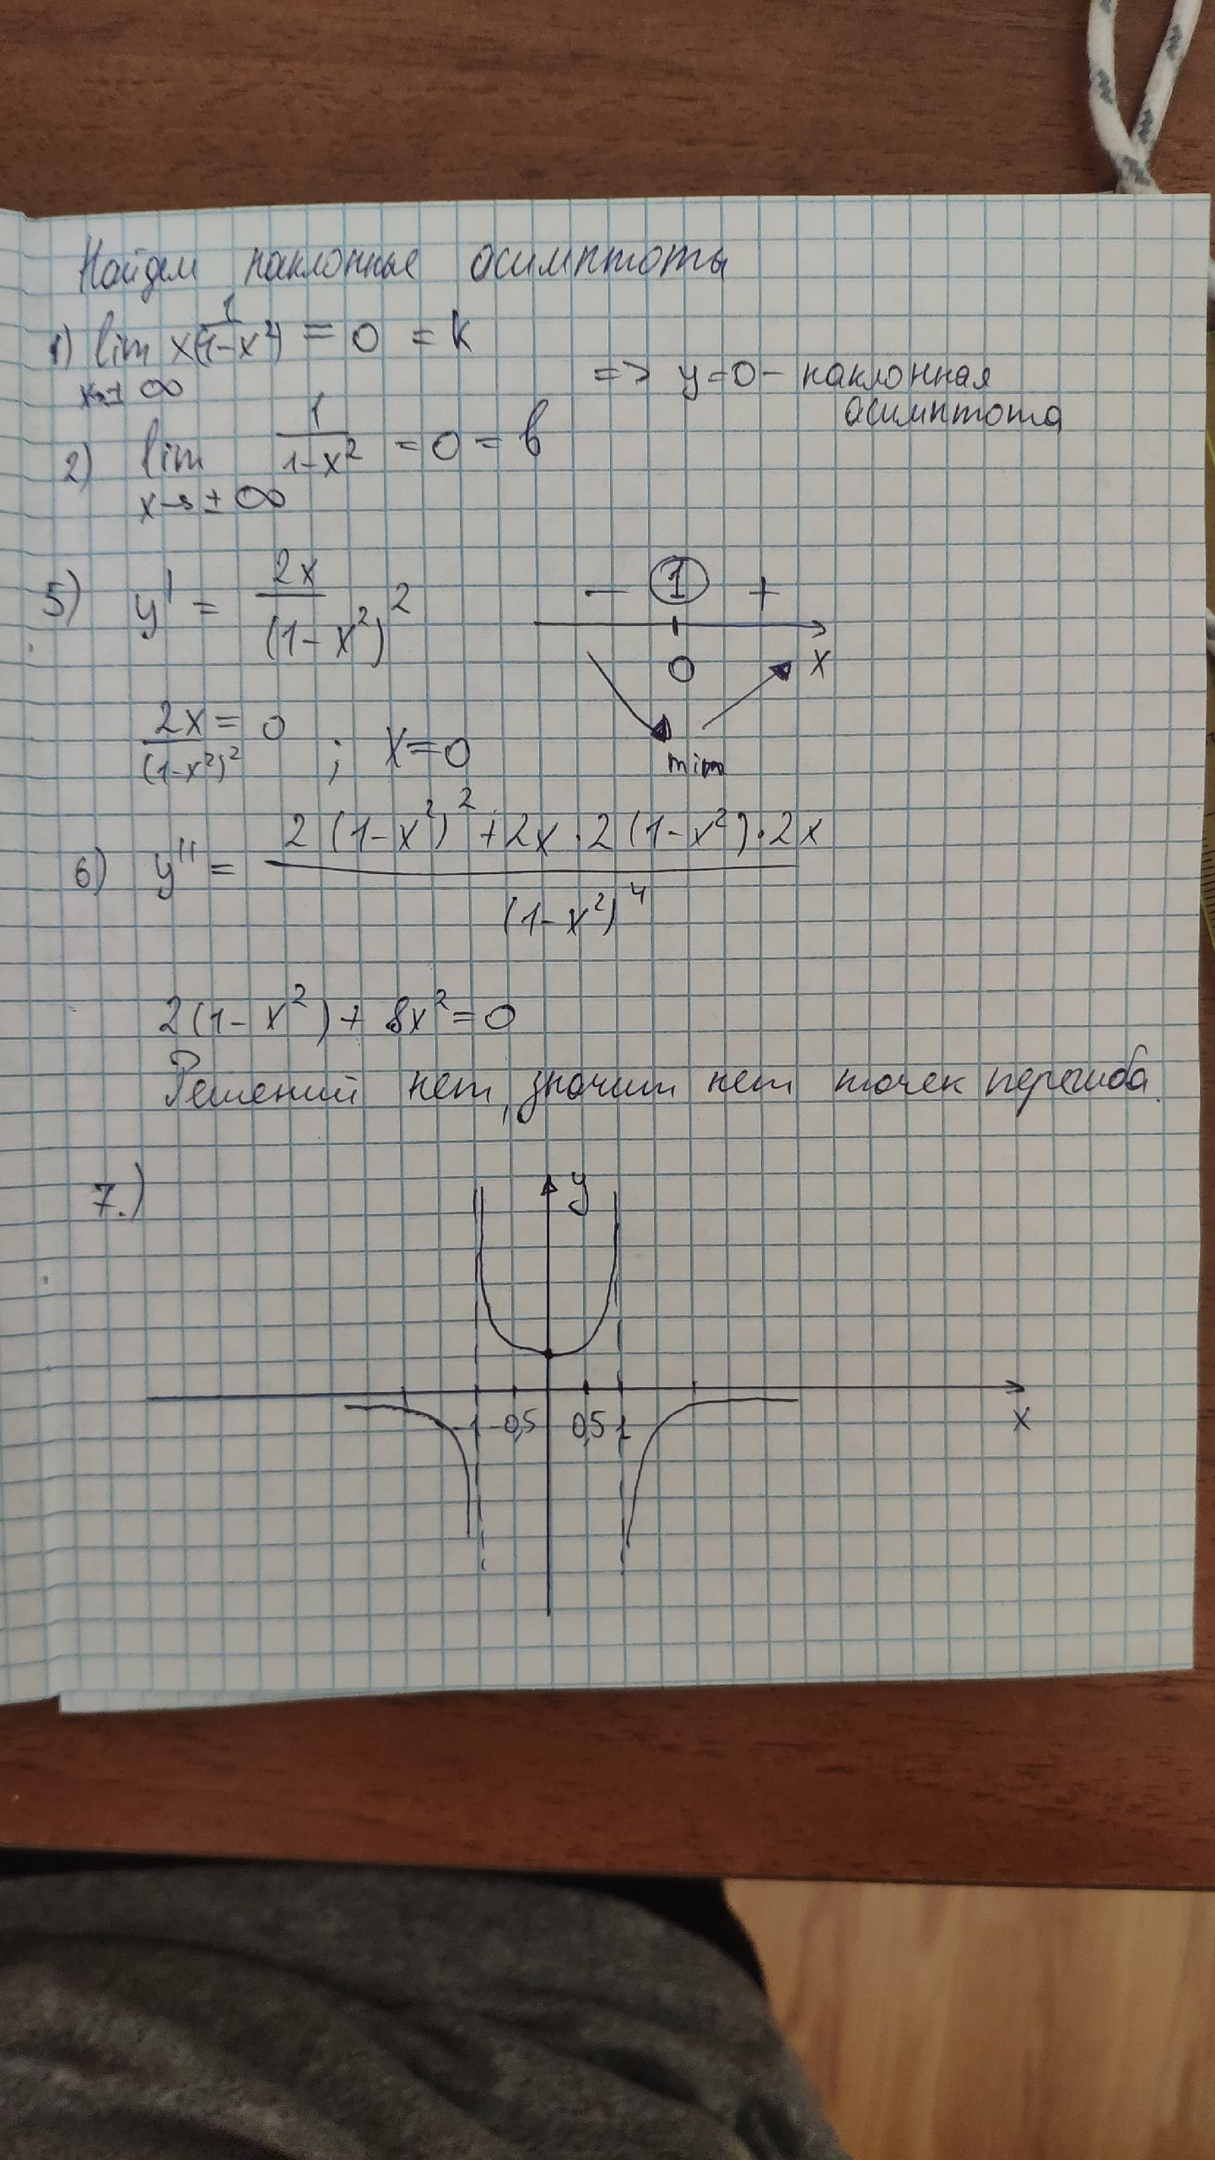 Найдем наклонные асимптоты
1) lim x→±∞ 1/(x(1-x²)) = 0 = k
=> y=0 - наклонная
асимптота
2) lim x→±∞ 1/(1-x²) = 0 = b
5) y' = 2x/(1-x²)²
- 1 +
0 x
min
2x/(1-x²)² = 0 ; x=0
6) y'' = (2(1-x²)²+2x·2(1-x²)·2x)/(1-x²)⁴
2(1-x²)+8x²=0
Решений нет, значит нет точек перегиба.
7.)
y
-1 -0,5 0,5 1
x